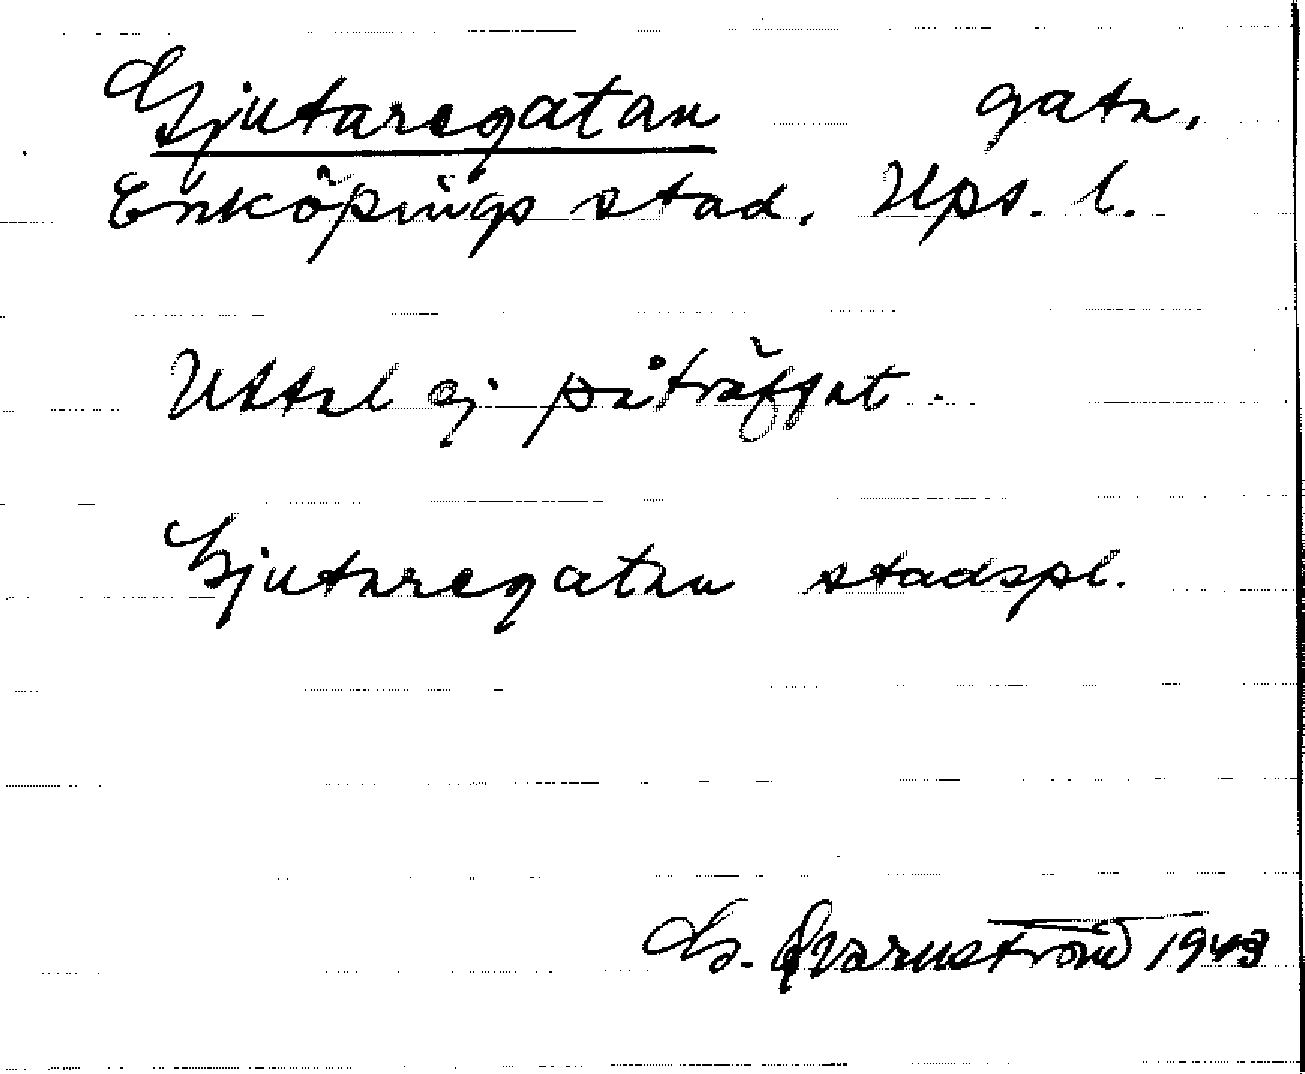 Gjutaregatan gata,
Enköpings stad. Ups. l.
Uttal ej påträffat.
Gjutaregatan stadspl.
G. Qvarnström 1943